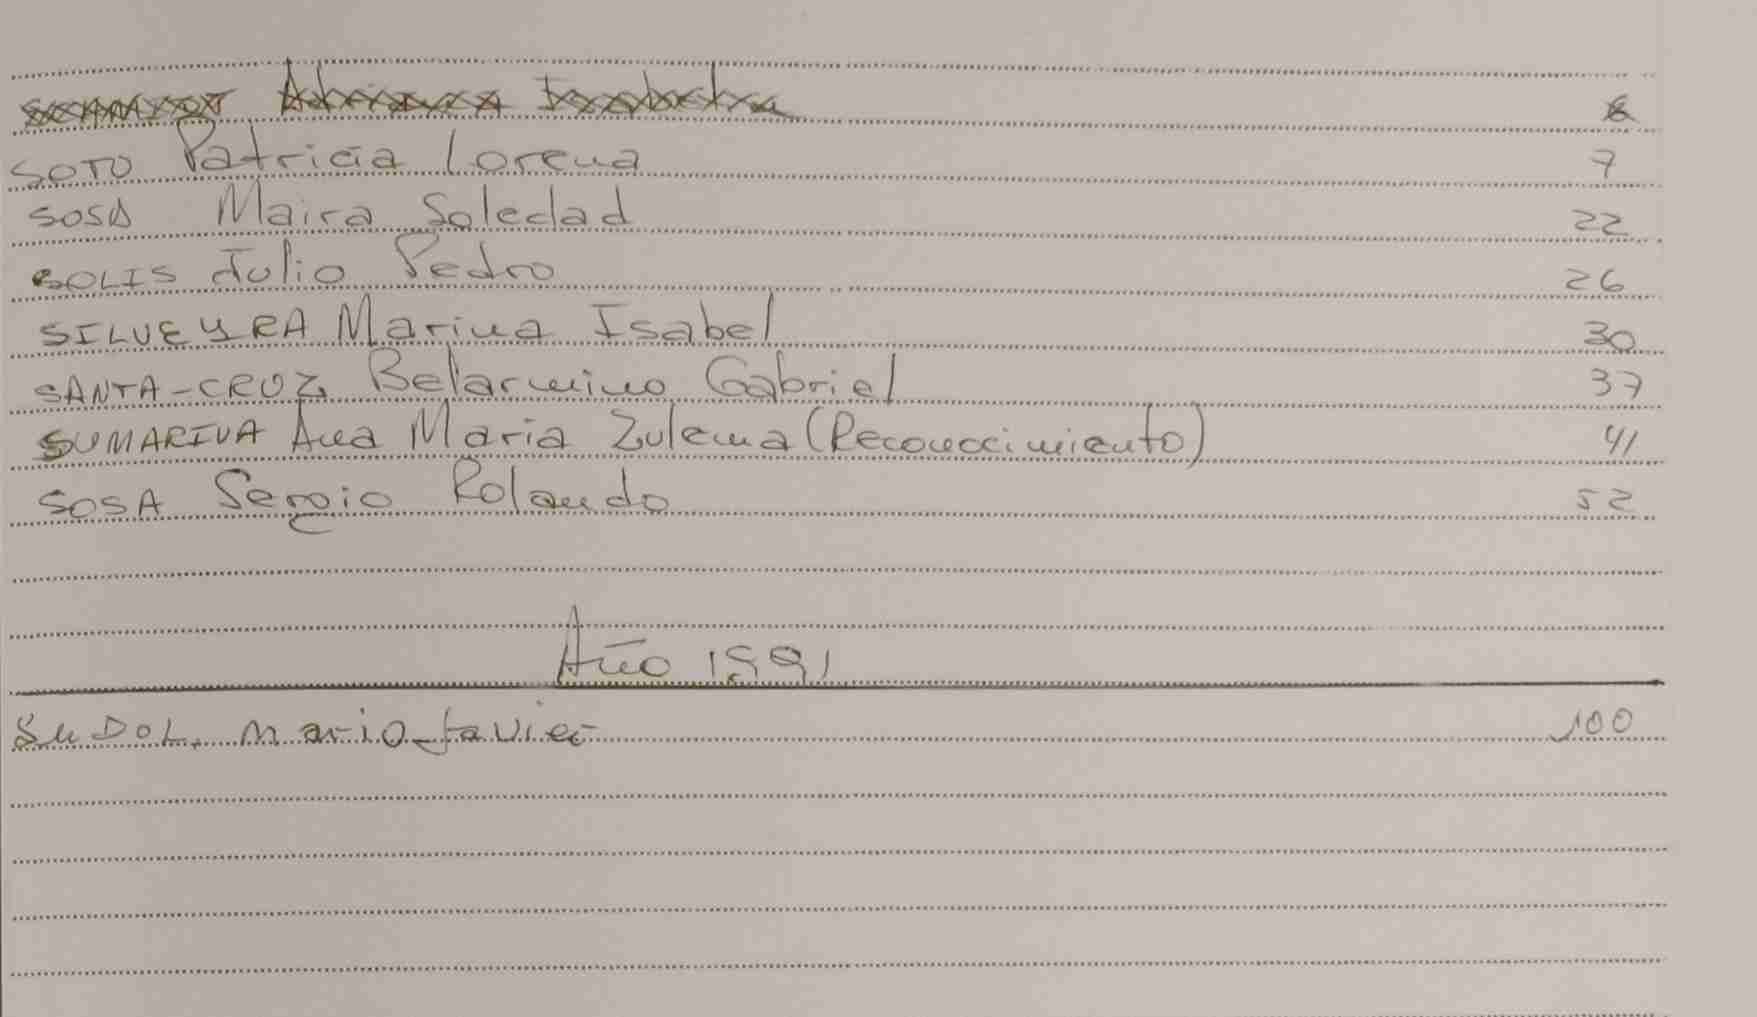 Adriana
SOTO Patricia Lorena 7
SOSA Maira Soledad 22
SOLIS Julio Pedro 26
SILVEYRA Marina Isabel 30
SANTA-CRUZ Belarmino Gabriel 37
SUMARIVA Ana Maria Zulema (Reconocimiento) 41
SOSA Sergio Rolando 52
Año 1991
SUDOL, Mario Javier 100